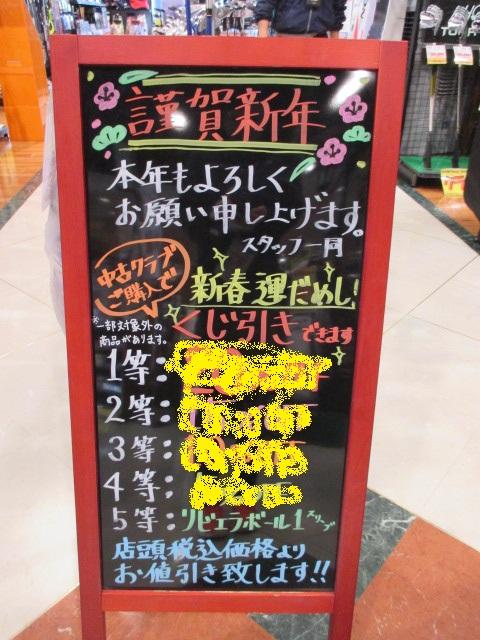 謹賀新年
本年もよろしく
お願い申し上げます。
スタッフ一同
中古クラブ
ご購入で
新春運だめし!
くじ引きできます
※一部対象外の
商品があります。
1等:
2等:
3等:
4等:
5等:リビエラボール1スリーブ
店頭税込価格より
お値引き致します!!